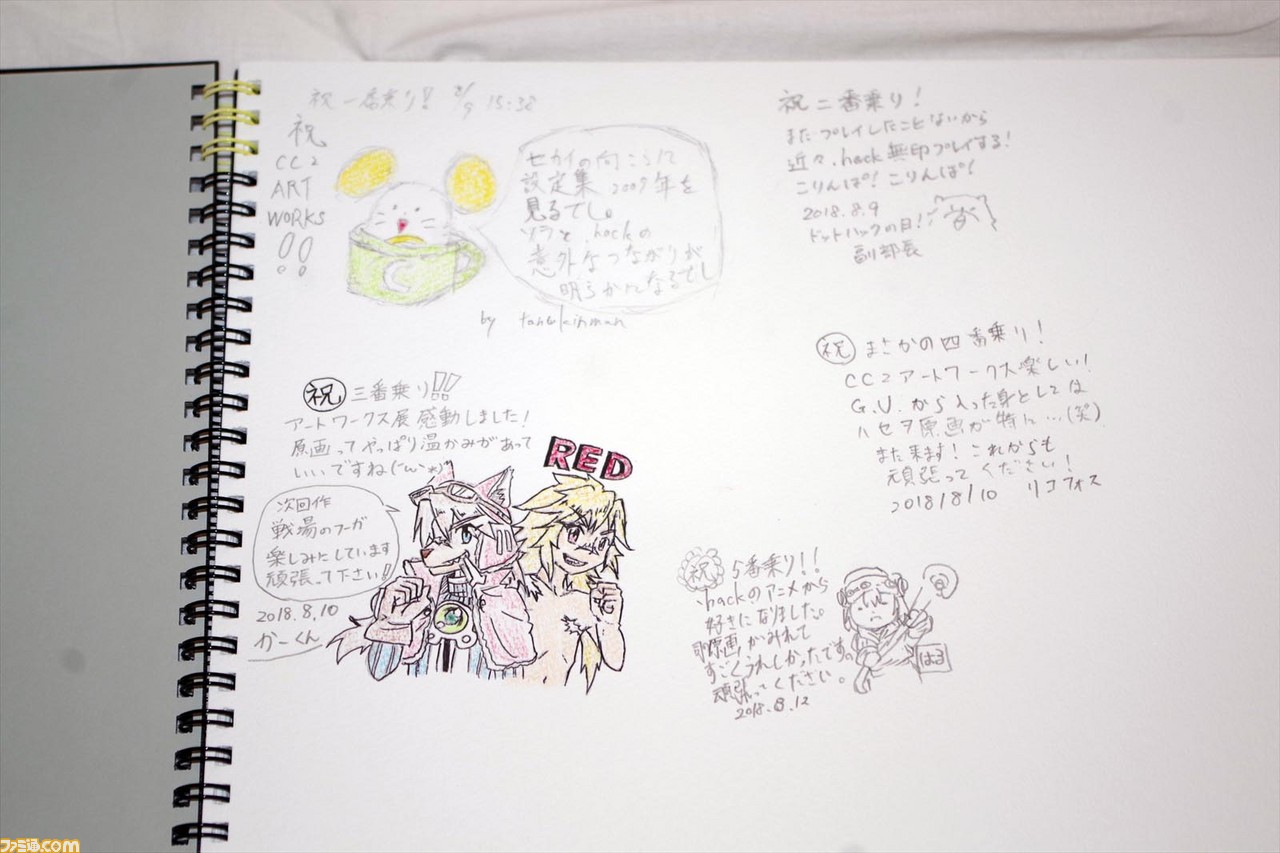 祝一番乗り!! 8/9 15:32
祝
CC2
ART
WORKS
!!
セカイの向こうに
設定集 2007年を
見るでし。
ソラと.hackの
意外なつながりが
明らかになるでし
C
by
祝二番乗り!
まだプレイしたことないから
近々.hack無印プレイする!
こりんぱ! こりんぱ!
2018.8.9
ドットハックの日!
副部長
祝 三番乗り!!
アートワークス展感動しました!
原画ってやっぱり温かみがあって
いいですね(´ω`*)
次回作
戦場のフーガ
楽しみにしています
頑張って下さい!!
2018.8.10
かーくん
RED
祝 まさかの四番乗り!
CC2アートワークス楽しい!
G.U.から入った身としては
ハセヲ原画が特に…(笑)
また来ます! これからも
頑張ってください!
2018/8/10 リコフォス
祝 5番乗り!!
.hackのアニメから
好きになりました。
原画がみれて
すごくうれしかったです。
頑張ってください。
2018.8.12
はる
ファミ通.com